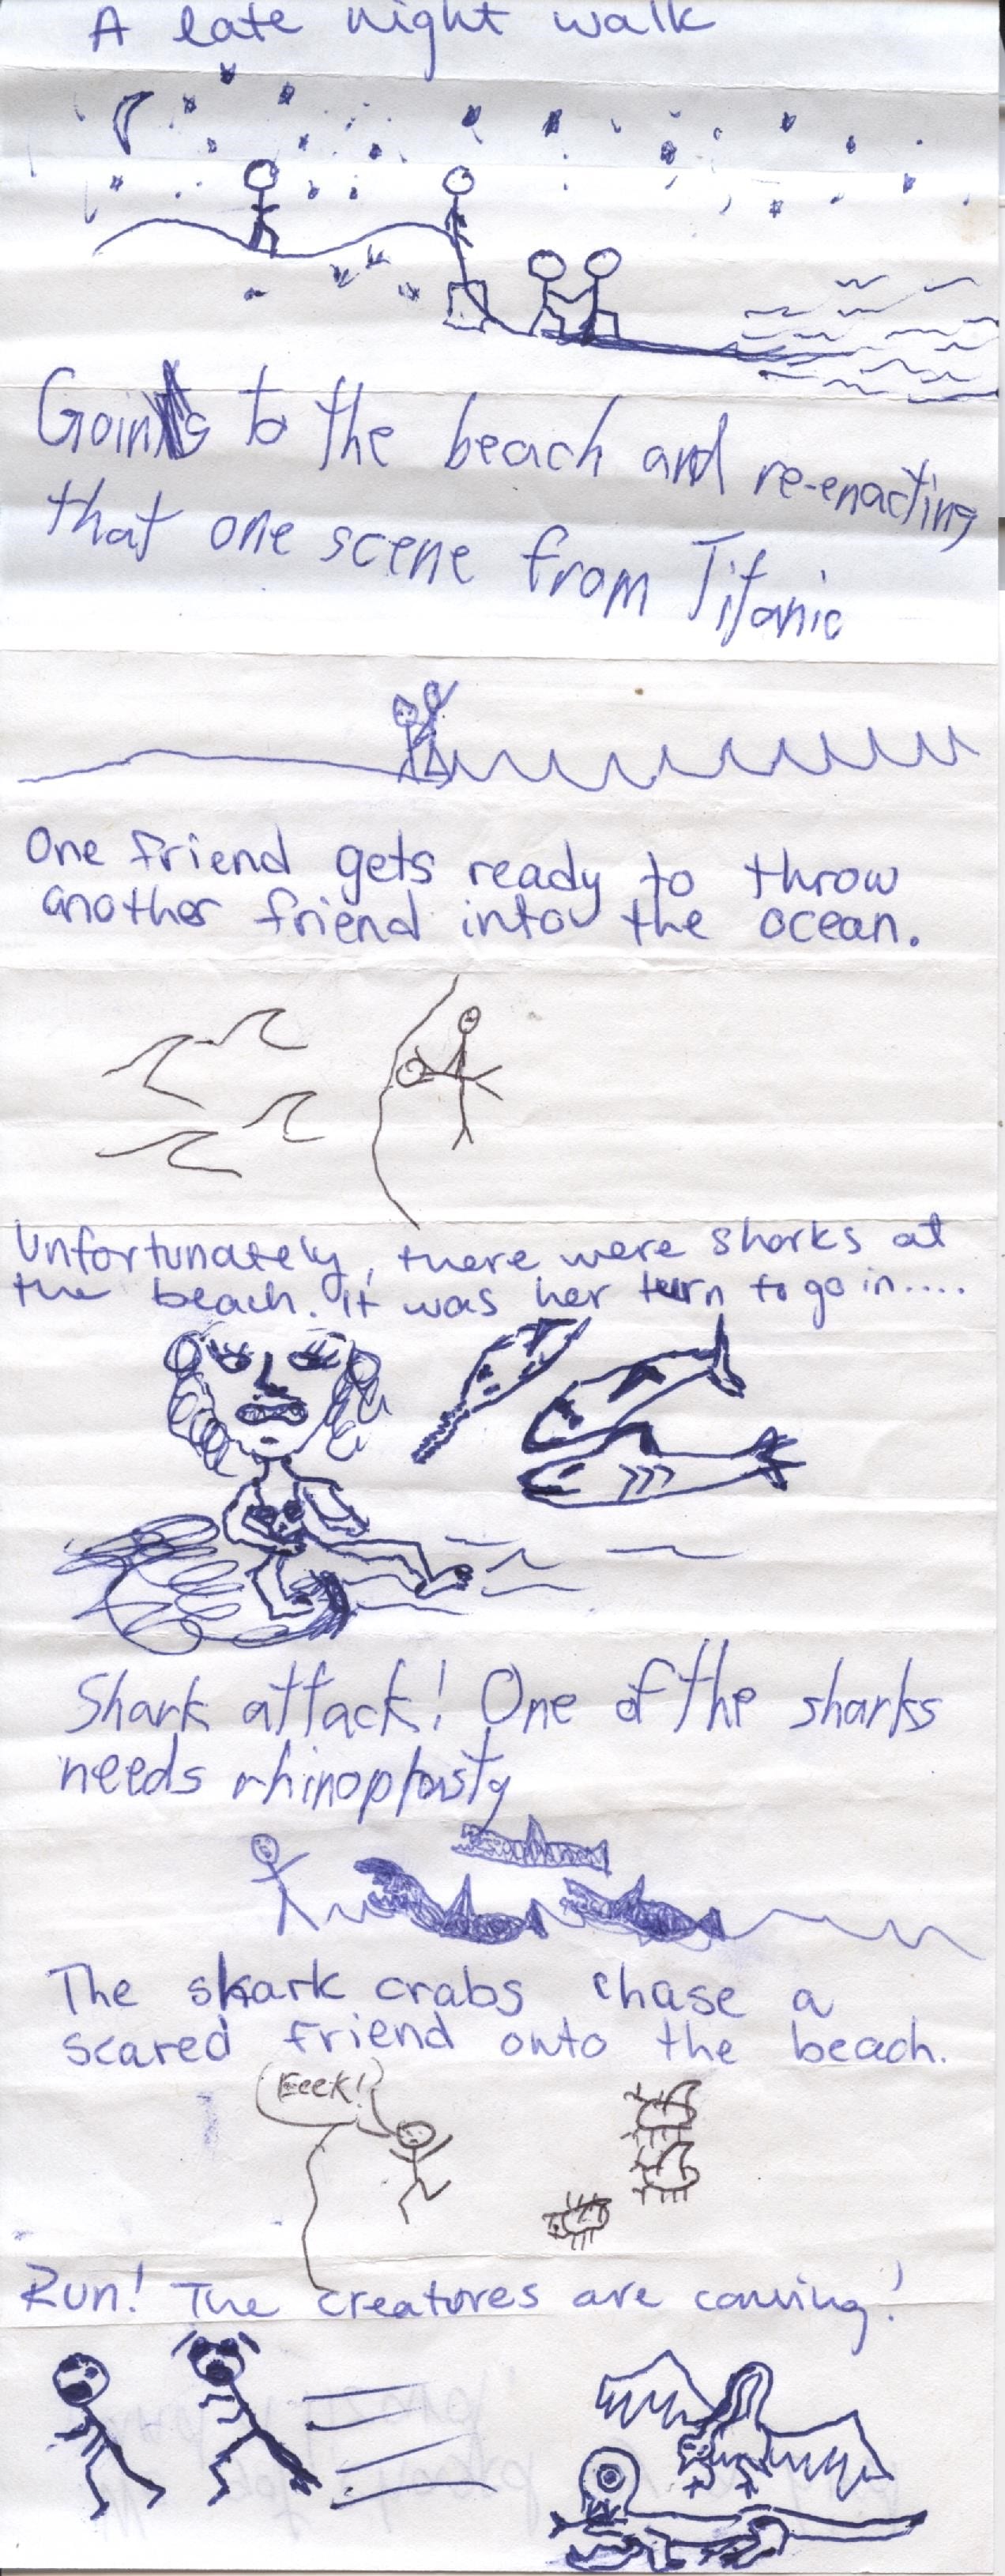 A late night walk
Going to the beach and re-enacting
that one scene from Titanic
One friend gets ready to throw
another friend into the ocean.
Unfortunately, there were sharks at
the beach. It was her turn to go in....
Shark attack! One of the sharks
needs rhinoplasty
The shark crabs chase a
scared friend onto the beach.
Eeek!
Run! The creatures are coming!